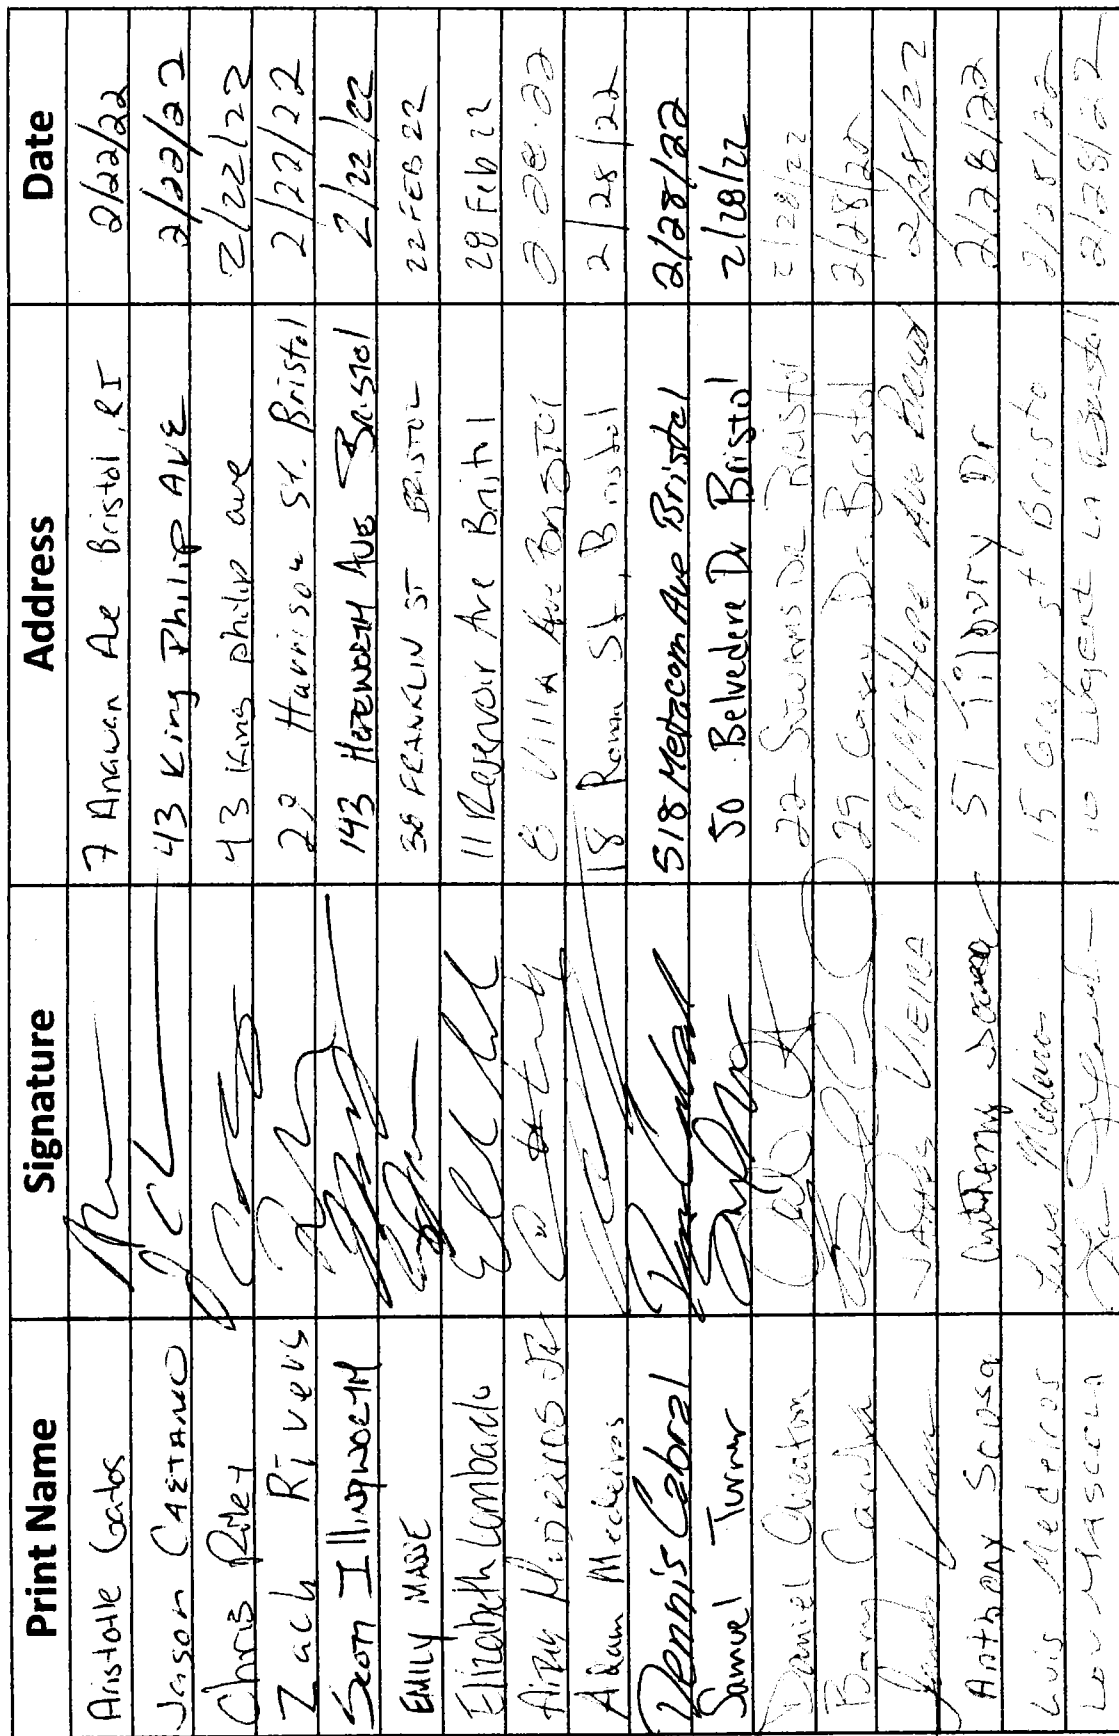 Print Name Signature Address Date
Aristotle Gatos 7 Anawan Ae Bristol, RI 2/22/22
Jason CAETANO 43 King Philip AVE 2/22/22
Chris Riley 43 King philip ave 2/22/22
Zach Rivers 22 Harrison St. Bristol 2/22/22
Scott Illingworth 143 Hopeworth Ave Bristol 2/22/22
EMILY MASSE 38 FRANKLIN ST BRISTOL 22 FEB 22
Elizabeth Lombardo 11 Reservoir Ave Bristol 28 Feb 22
8 Villa Ave BRISTOL 2-28-22
Adam Medeiros 18 Roma St, Bristol 2/28/22
Dennis Cabral Dennis Cabral 518 Metacom Ave Bristol 2/28/22
Samuel Turner 50 Belvedere Dr Bristol 2/28/22
Daniel 22 Sowams DR BRistol 2/28/22
Barry 29 Casey Dr. Bristol 2/28/20
James VIEIRA 181 Mt Hope Ave 2/28/22
Anthony Sousa Anthony Sousa 51 Tilbury Dr 2/28/22
Luis Medeiros Luis Medeiros 15 Gray st Bristo 2/28/22
Lou MASCOLA LN Bristol 2/28/22